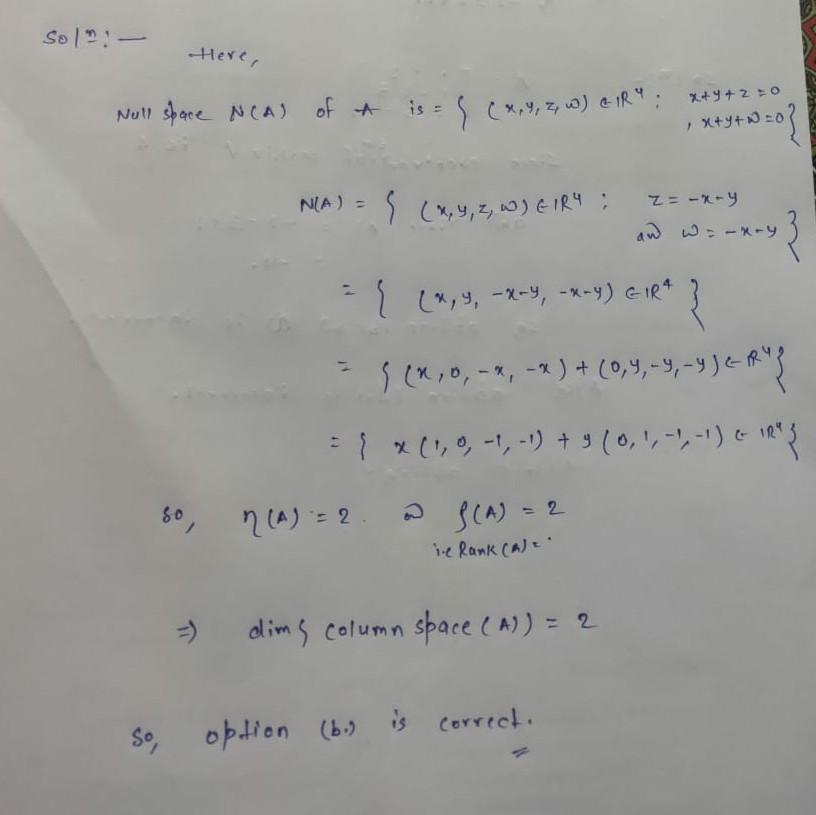 Solⁿ:—
Here,
Null space N(A) of A is = { (x,y,z,w) ∈ IR⁴ ; x+y+z=0
, x+y+w=0}
N(A) = { (x,y,z,w) ∈ IR⁴ ; z = -x-y
and w = -x-y }
= { (x,y, -x-y, -x-y) ∈ IR⁴ }
= { (x,0,-x,-x) + (0,y,-y,-y) ∈ IR⁴}
= { x(1,0,-1,-1) + y(0,1,-1,-1) ∈ IR⁴}
so, η(A) = 2. ρ(A) = 2
i.e Rank(A) =
⇒ dim{ column space (A)) = 2
So, option (b.) is correct.